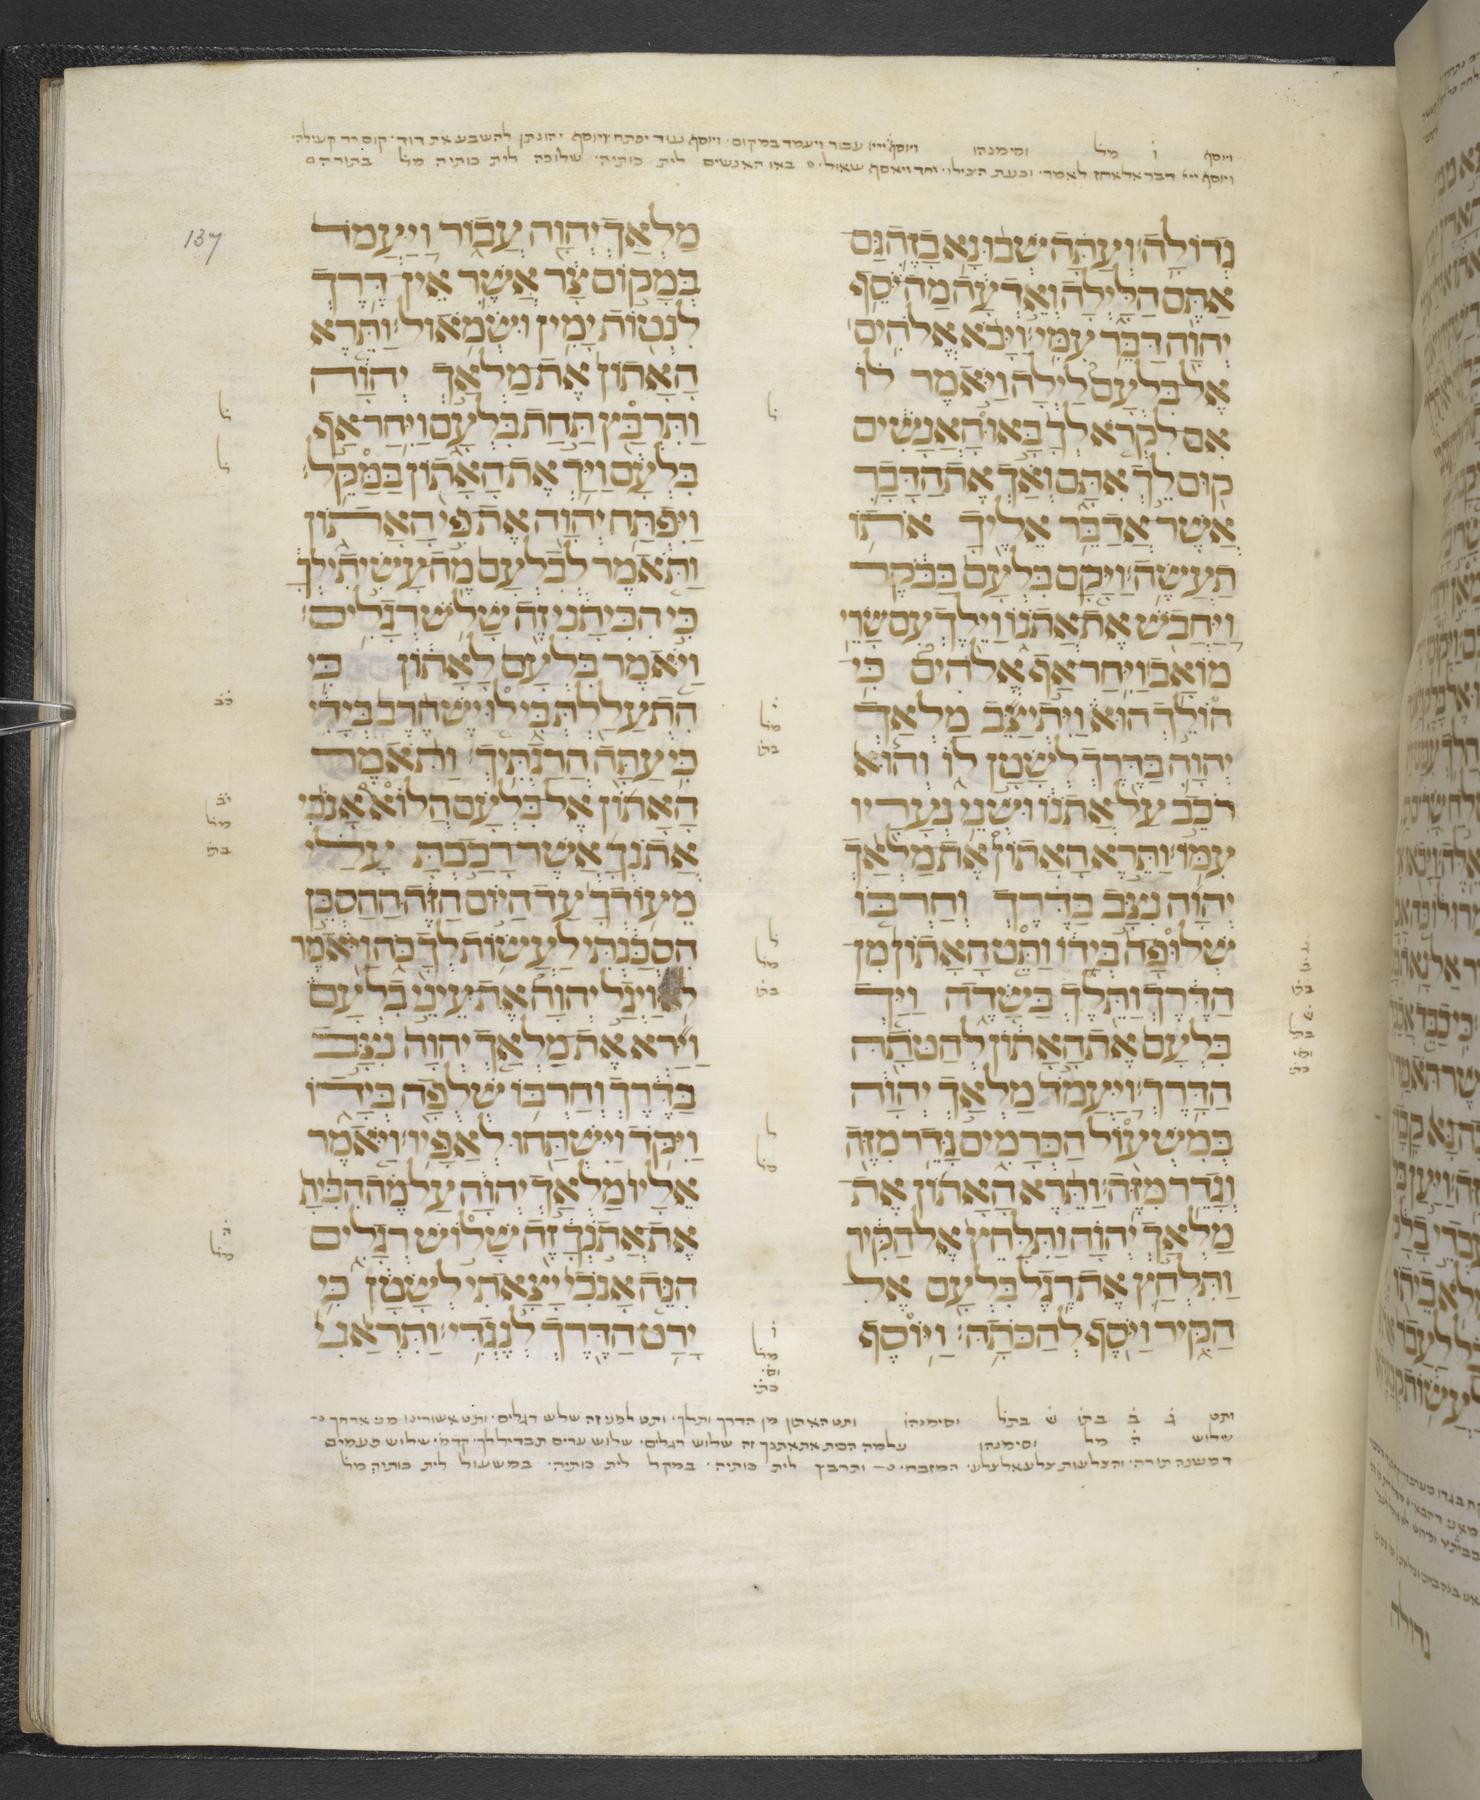 ויוסף ו מל וסימנהו ויוסף ייי עבור ויעמד במקום· ויוסף עוד יפתח· ויוסף יהונתן להשבע את דוד· קום רד קעילה·
ויוסף ייי דבר אל אחז לאמר· וחד ויאסף שאול· באו האנשים לית כותיה· שלופה לית כותיה מל בתורה
137
גְדוֹלָה׃ וְעַתָּה שְׁבוּ נָא בָזֶה גַּם
אַתֶּם הַלָּיְלָה וְאֵדְעָה מַה יֹּסֵף
יְהוָה דַּבֵּר עִמִּי׃ וַיָּבֹא אֱלֹהִים
אֶל בִּלְעָם לַיְלָה וַיֹּאמֶר לוֹ
אִם לִקְרֹא לְךָ בָּאוּ הָאֲנָשִׁים
קוּם לֵךְ אִתָּם וְאַךְ אֶת הַדָּבָר
אֲשֶׁר אֲדַבֵּר אֵלֶיךָ אֹתוֹ
תַעֲשֶׂה׃ וַיָּקָם בִּלְעָם בַּבֹּקֶר
וַיַּחֲבֹשׁ אֶת אֲתֹנוֹ וַיֵּלֶךְ עִם שָׂרֵי
מוֹאָב׃ וַיִּחַר אַף אֱלֹהִים כִּי
הוֹלֵךְ הוּא וַיִּתְיַצֵּב מַלְאַךְ
יְהוָה בַּדֶּרֶךְ לְשָׂטָן לוֹ וְהוּא
רֹכֵב עַל אֲתֹנוֹ וּשְׁנֵי נְעָרָיו
עִמּוֹ׃ וַתֵּרֶא הָאָתוֹן אֶת מַלְאַךְ
יְהוָה נִצָּב בַּדֶּרֶךְ וְחַרְבּוֹ
שְׁלוּפָה בְּיָדוֹ וַתֵּט הָאָתוֹן מִן
הַדֶּרֶךְ וַתֵּלֶךְ בַּשָּׂדֶה וַיַּךְ
בִּלְעָם אֶת הָאָתוֹן לְהַטֹּתָהּ
הַדָּרֶךְ׃ וַיַּעֲמֹד מַלְאַךְ יְהוָה
בְּמִשְׁעוֹל הַכְּרָמִים גָּדֵר מִזֶּה
וְגָדֵר מִזֶּה׃ וַתֵּרֶא הָאָתוֹן אֶת
מַלְאַךְ יְהוָה וַתִּלָּחֵץ אֶל הַקִּיר
וַתִּלְחַץ אֶת רֶגֶל בִּלְעָם אֶל
הַקִּיר וַיֹּסֶף לְהַכֹּתָהּ׃ וַיּוֹסֶף
מַלְאַךְ יְהוָה עֲבוֹר וַיַּעֲמֹד
בְּמָקוֹם צָר אֲשֶׁר אֵין דֶּרֶךְ
לִנְטוֹת יָמִין וּשְׂמֹאול׃ וַתֵּרֶא
הָאָתוֹן אֶת מַלְאַךְ יְהוָה
וַתִּרְבַּץ תַּחַת בִּלְעָם וַיִּחַר אַף
בִּלְעָם וַיַּךְ אֶת הָאָתוֹן בַּמַּקֵּל׃
וַיִּפְתַּח יְהוָה אֶת פִּי הָאָתוֹן
וַתֹּאמֶר לְבִלְעָם מֶה עָשִׂיתִי לְךָ
כִּי הִכִּיתַנִי זֶה שָׁלֹשׁ רְגָלִים׃
וַיֹּאמֶר בִּלְעָם לָאָתוֹן כִּי
הִתְעַלַּלְתְּ בִּי לוּ יֶשׁ חֶרֶב בְּיָדִי
כִּי עַתָּה הֲרַגְתִּיךְ׃ וַתֹּאמֶר
הָאָתוֹן אֶל בִּלְעָם הֲלוֹא אָנֹכִי
אֲתֹנְךָ אֲשֶׁר רָכַבְתָּ עָלַי
מֵעוֹדְךָ עַד הַיּוֹם הַזֶּה הַהַסְכֵּן
הִסְכַּנְתִּי לַעֲשׂוֹת לְךָ כֹּה וַיֹּאמֶר
לֹא׃ וַיְגַל יְהוָה אֶת עֵינֵי בִלְעָם
וַיַּרְא אֶת מַלְאַךְ יְהוָה נִצָּב
בַּדֶּרֶךְ וְחַרְבּוֹ שְׁלֻפָה בְּיָדוֹ
וַיִּקֹּד וַיִּשְׁתַּחוּ לְאַפָּיו׃ וַיֹּאמֶר
אֵלָיו מַלְאַךְ יְהוָה עַל מָה הִכִּיתָ
אֶת אֲתֹנְךָ זֶה שָׁלוֹשׁ רְגָלִים
הִנֵּה אָנֹכִי יָצָאתִי לְשָׂטָן כִּי
יָרַט הַדֶּרֶךְ לְנֶגְדִּי׃ וַתִּרְאַנִי
ותט ג ב בתו ש בתל וסימנהו ותט האתון מן הדרך ותלך· ותט לפני זה שלש רגלים· ותט אשורינו מני ארחך
שלוש ה מל וסימנהון על מה הכית את אתנך זה שלוש רגלים· שלוש ערים תבדיל לך· קדמ· שלוש פעמים
דמשנה תורה· והצלעות צלע אל צלע· המזבח· ותרבץ לית כותיה· במקל לית כותיה· במשעול לית כותיה מל